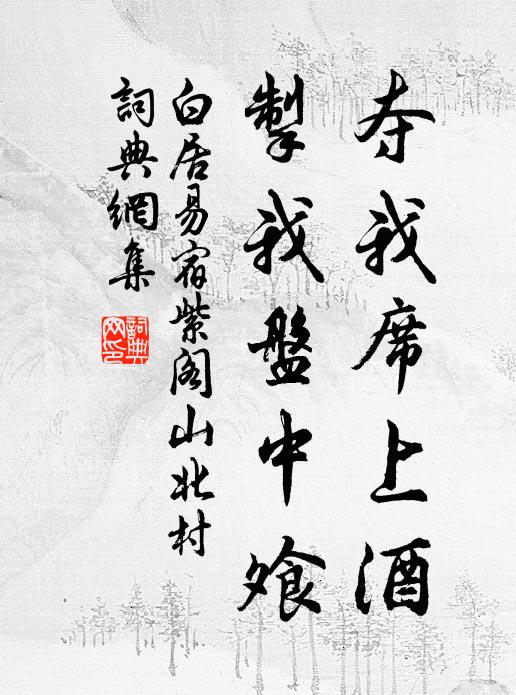 夺我席上酒
掣我盤中飧
白居易宿紫阁山北村
詞典網集
詞典网印